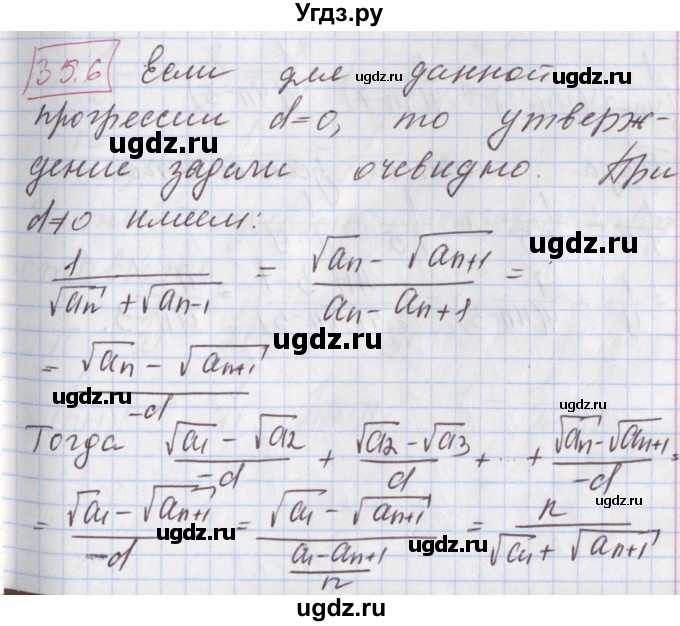 Угдз.ру
35.6 Если для данной
прогрессии d=0, то утверж-
дение задачи очевидно. При
d≠0 имеем:
1/(√an + √an-1) = (√an - √an+1)/(an - an+1) =
= (√an - √an+1)/(-d)
Тогда (√a1 - √a2)/(-d) + (√a2 - √a3)/d + ... + (√an - √an+1)/(-d) =
= (√a1 - √an+1)/(-d) = (√a1 - √an+1)/((a1 - an+1)/n) = n/(√a1 + √an+1)
ugdz.ru
ugdz.ru
ugdz.ru
ugdz.ru
ugdz.ru
ugdz.ru
ugdz.ru
ugdz.ru
ugdz.ru
ugdz.ru
ugdz.ru
ugdz.ru
ugdz.ru